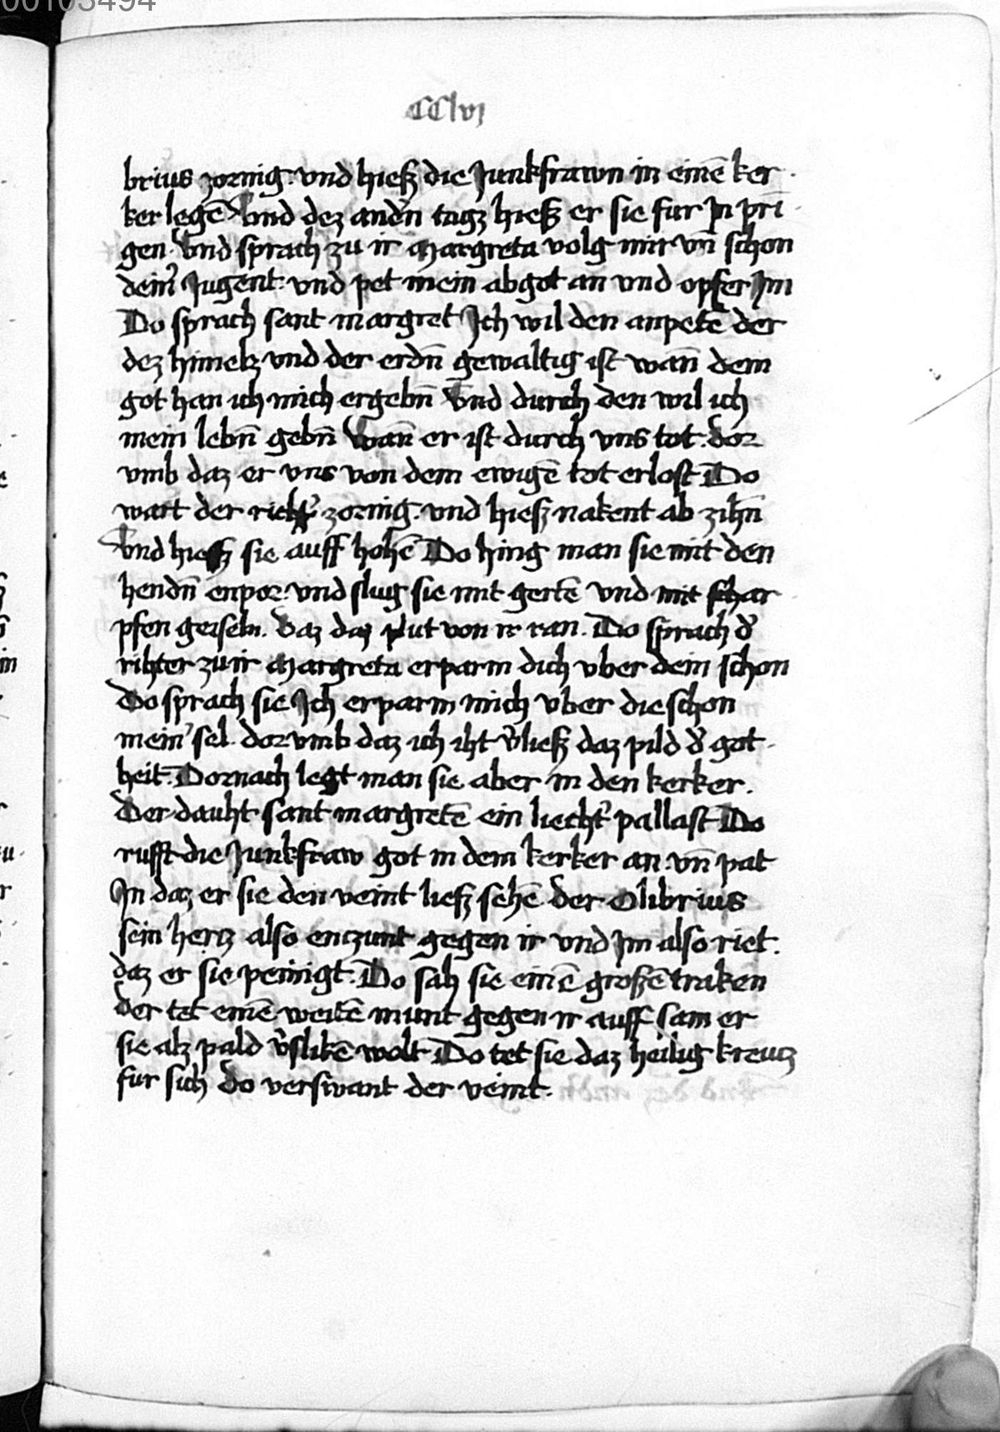 00103494
CClvj
brius zornig. vnd hiesz die Junkfrawn in einē ker
ker legē Vnd dez andn̄ tagz hiesz er sie fur In pri
gen. Vnd sprach zu ir Margreta volg mir vn̄ schon
dein' Jugent. vnd pet mein abgot an vnd opfer Im
Do sprach sant margret Ich wil den anpetē der
dez himelz vnd der erdn̄ gewaltig ist wan̄ dem
got han ich mich ergebn̄ Vnd durch den wil ich
mein lebn̄ gebn̄ Wan̄ er ist durch vns tot. dor
vmb daz er vns von dem ewigē tot erlost Do
wart der zornig. vnd hiesz nakent ab zihn̄
Vnd hiesz sie auff hohē Do hing man sie mit den
hendn̄ enpor. vnd slug sie mit gertē vnd mit schar
pfen geiseln. Daz daz plut von ir ran. Do sprach d'
rihter zu ir Margreta erparm dich vber dein schon
Do sprach sie Ich erparm mich vber die schon
mein' sel. dorvmb daz ich iht v'liesz daz pild d' got
heit. Dornach legt man sie aber in den kerker.
Der dauht sant margretē ein liecht' pallast Do
rufft die Junkfraw got in dem kerker an. vn̄ pat
In daz er sie den veint liesz sehē der Olibrius
sein hertz also enczunt gegen ir vnd Im also riet.
daz er sie peinigt. Do sah sie einē groszē traken
der tet einē weitē munt gegen ir auff sam er
sie alz pald v'slikē wolt Do tet sie daz heilig kreutz
fur sich Do verswant der veint.